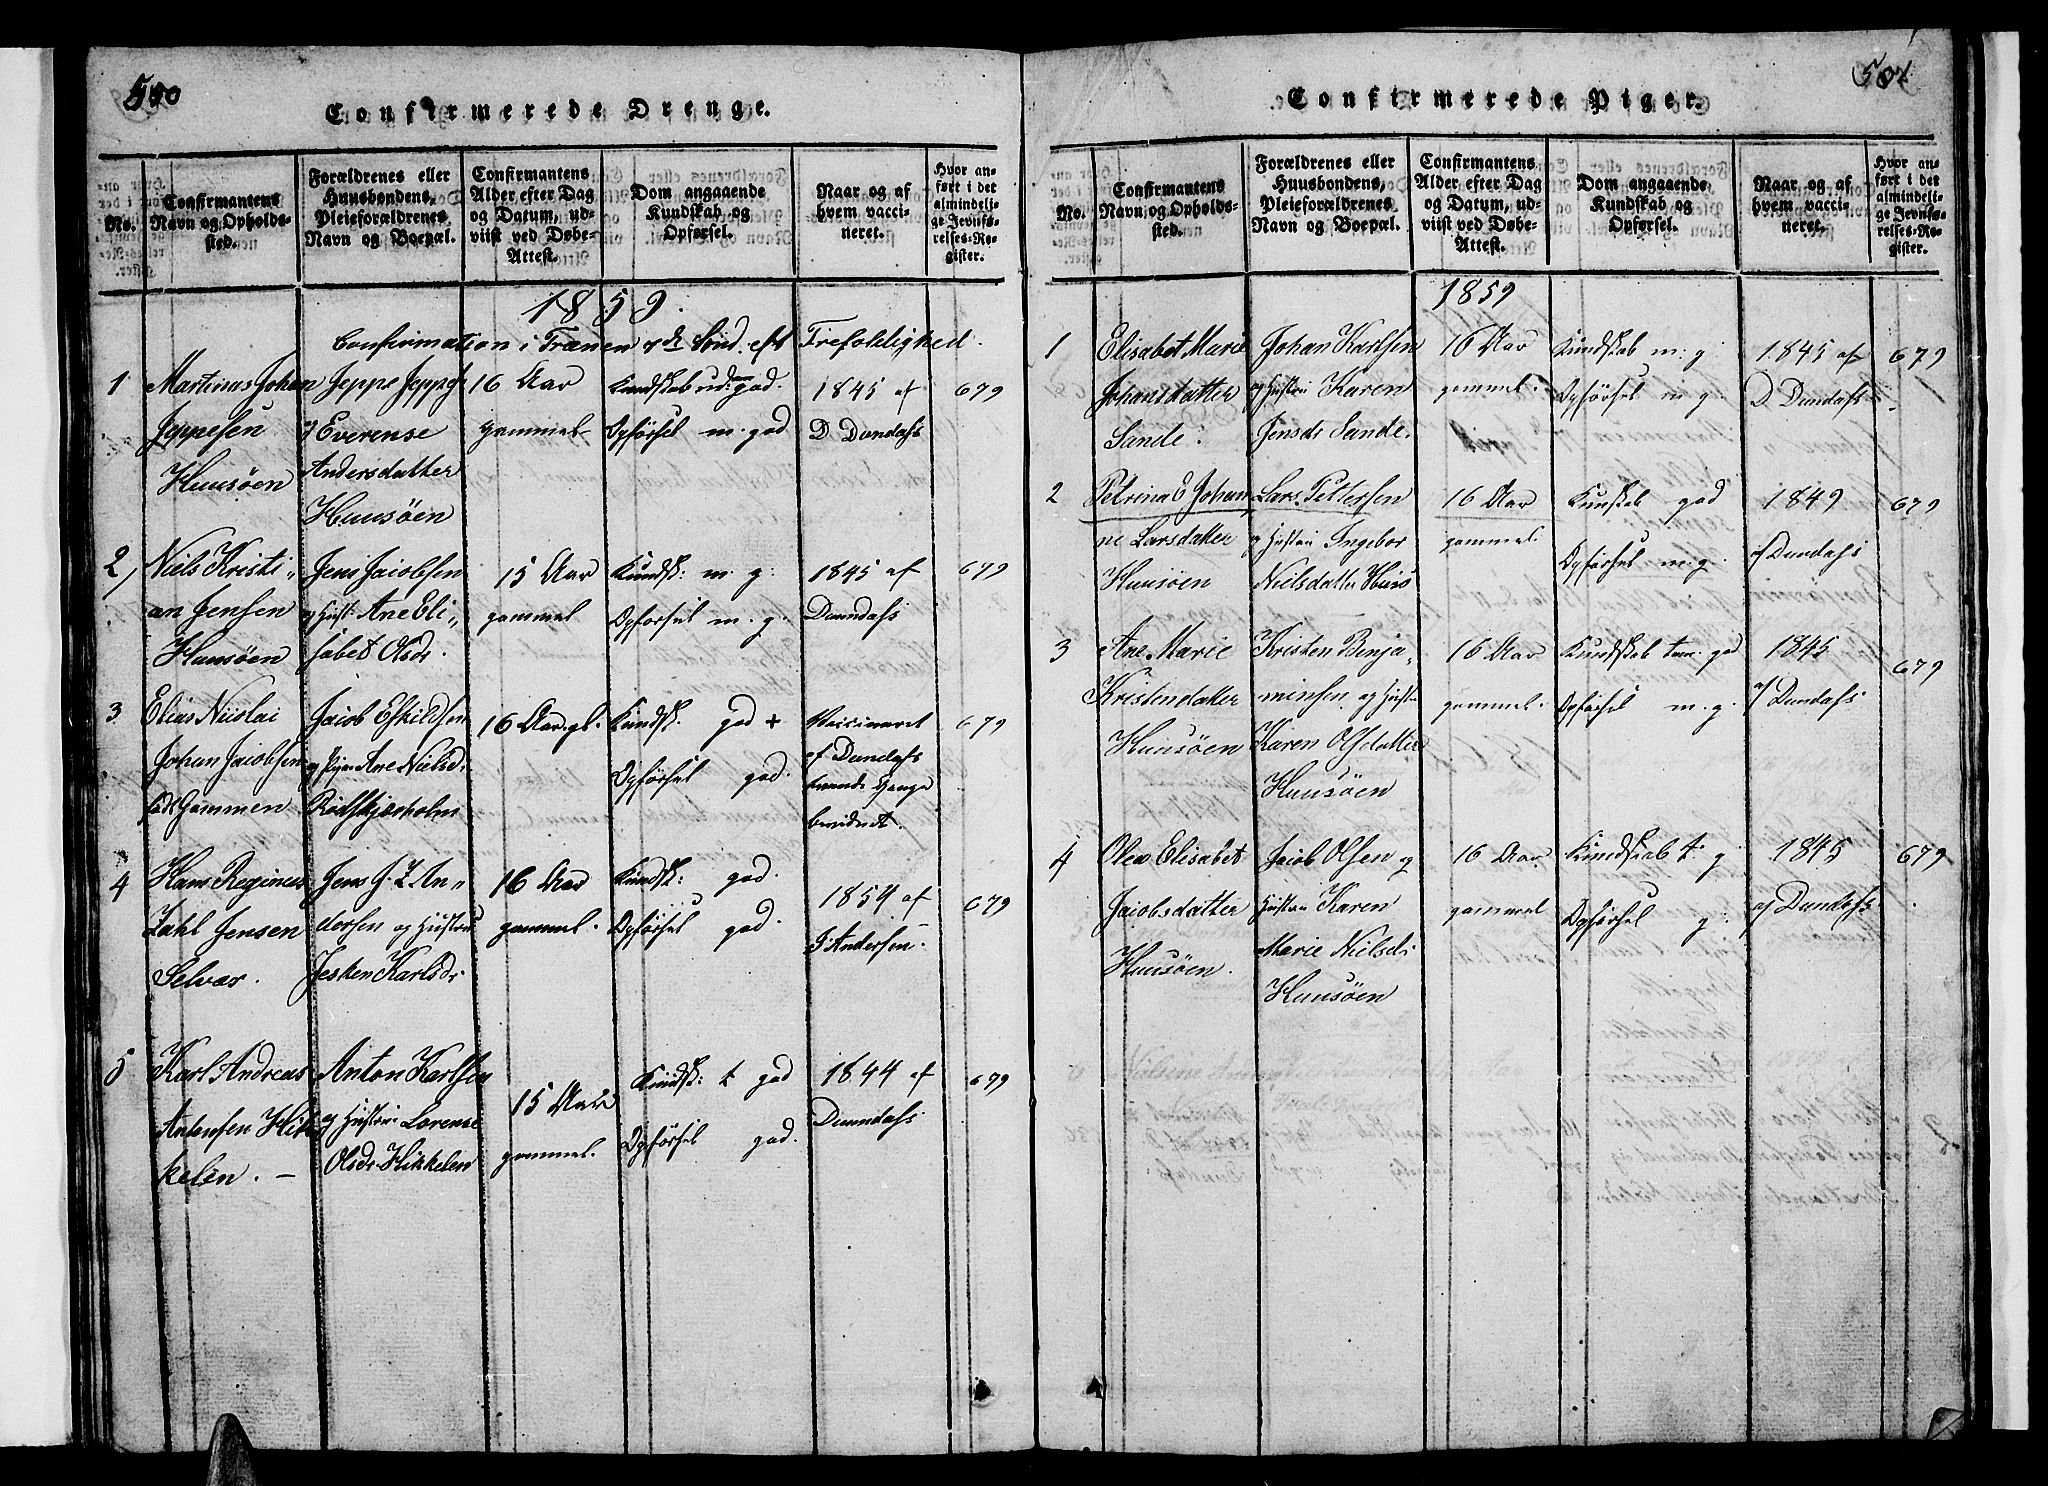 500
Confirmerede Drenge.
No.
Confirmantens
Navn og Opholds-
sted.
Forældrenes eller
Huusbondens,
Pleieforældrenes
Navn og Boepæl.
Confirmantens
Alder efter Dag
og Datum, ud-
viist ved Døbe-
Attest.
Dom angaaende
Kundskab og
Opførsel.
Naar og af
hvem vacci-
neret.
Hvor an-
ført i det
almindeli-
ge Jevnfø-
relses-Re-
gister.
1859.
Confirmation i Trænen Sønd. eft Trefoldighed.
1
Martinus Johan
Jeppesen
Huusøen
Jeppe Jeppes
Everense
Andersdatter
Huusøen
16 Aar
gammel
Kundskab ud: god.
Opførsel m. god
1845 af
D Dundass
679
2
Niels Kristi
an Jensen
Huusøen
Jens Jacobsen
og Hust: Ane Eli
sabet Olsdr.
15 Aar
gammel
Kundsk: m: g:
Opførsel m. g.
1845 af
Dundass
679
3
Elias Nicolai
Johan Jacobsen
Gammen
Jacob Eskildsen
og Ane Nielsd.
Rødskjærholm
16 Aar gl.
Kundsk: god +
Opførsel god.
Vaccineret
af Dundass
bevidnet.
679
4
Hans Regineus
Zahl Jensen
Selvær.
Jens J. Z An
dersen og Hustru
Jesken Karlsdr
16 Aar
gammel.
Kundsk: god.
Opførsel god.
1859 af
J Andersen.
679
5
Karl Andreas
Antonsen Hik
kelen. —
Anton Karlsen
og Hustru Lorense
Olsdr Hikkelen
15 Aar
gammel.
Kundsk: t god
Opførsel god.
1844 af
Dundass
679
501
Confirmerede Piger.
No.
Confirmantens
Navn og Opholds-
sted.
Forældrenes eller
Huusbondens,
Pleieforældrenes
Navn og Boepæl.
Confirmantens
Alder efter Dag
og Datum, ud-
viist ved Døbe-
Attest.
Dom angaaende
Kundskab og
Opførsel.
Naar og af
hvem vacci-
neret.
Hvor an-
ført i det
almindeli-
ge Jevnfø-
relses-Re-
gister.
1859
1
Elisabet Marie
Johansdatter
Sande.
Johan Karlsen
og Hustru Karen
Jensdr Sande.
16 Aar
gammel.
Kundskab m: g:
Opførsel m. g:
1845 af
D Dundass
679
2
Petrina E Johan
ne Larsdatter
Huusøen
Lars Pettersen
og Hustru Ingebor
Nielsdatter Huus
16 Aar
gammel.
Kunskab god
Opførsel m. g.
1849
af Dundass
679
3
Ane Marie
Kristendatter
Huusøen
Kristen Binja
minsen og Hustru
Karen Olsdatter
Huusøen
16 Aar
gammel.
Kundskab tem. god
Opførsel m. g.
1845
af Dundass
679
4
Olea Elisabet
Jacobsdatter
Huusøen.
Jacob Olsen og
Hustru Karen
Marie Nielsdr
Huusøen
16 Aar
gammel
Kundskab t. g
Opførsel g.
1845
af Dundass
679